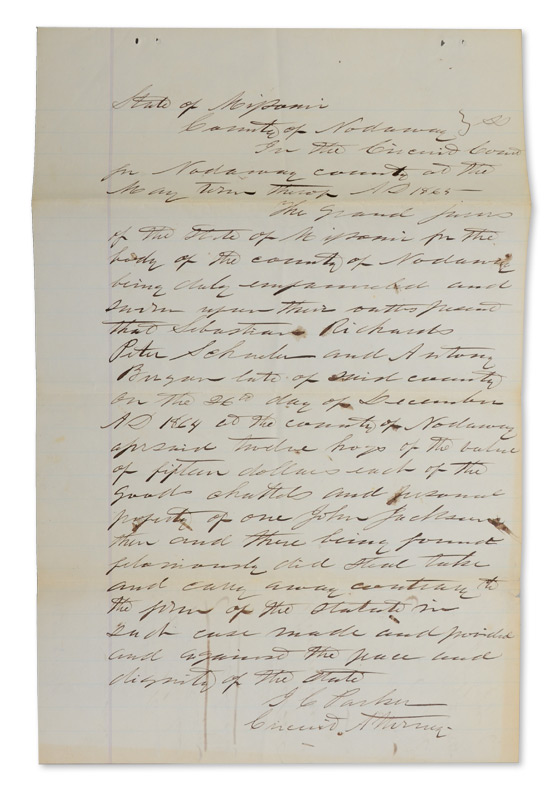 State of Missouri
County of Nodaway } SS
In the Circuit Court
for Nodaway county at the
May term therof AD 1865
The Grand jurors
of the State of Missouri for the
body of the county of Nodaway
being duly empanneled and
sworn upon their oaths present
that Sebastian Richards
Peter Schuler and Antony
Bergan late of said county
on the 26th day of December
AD 1864 at the county of Nodaway
aforsaid twelve hogs of the value
of fifteen dollars each of the
goods chattels and personal
property of one John Jackson
then and there being found
feloniously did steal take
and carry away contrary to
the form of the statute in
such case made and provided
and against the peace and
dignity of the State
I C Parker
Circuit Attorney